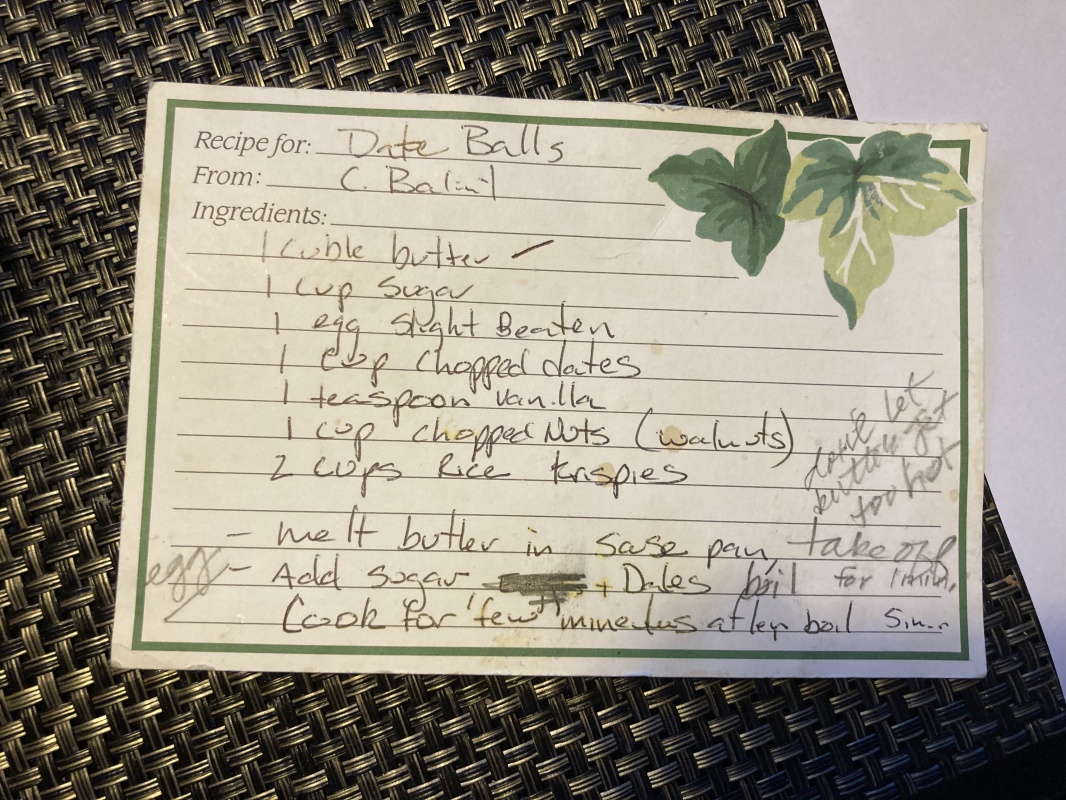 Recipe for: Date Balls
From: C.
Ingredients:
1 cuble butter
1 cup Sugar
1 egg slight Beaten
1 cup chopped dates
1 teaspoon vanilla
1 cup chopped Nuts (walnuts)
2 cups Rice Krispies
don't let
button get
too hot
- melt butter in sase pan, take off
egg - Add sugar + Dates boil for 1 min.
Cook for 'few' minetus after boil 5 min